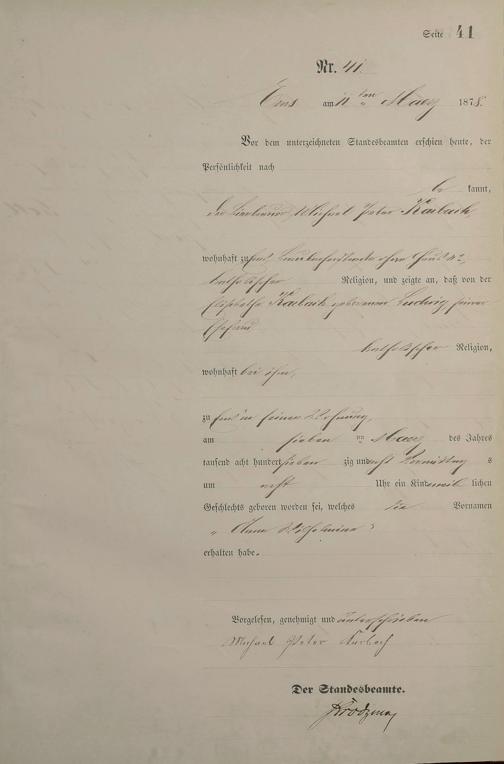 Seite 41
Nr. 41.
Ems am 11ten Maerz 1878.
Vor dem unterzeichneten Standesbeamten erschien heute, der
Persönlichkeit nach
be kannt,
der Michael Peter Karbach,
wohnhaft zu Ems,
katholischer Religion, und zeigte an, daß von der
Elisabetha Karbach geborenen Ludwig, seiner
Ehefrau
katholischer Religion,
wohnhaft bei ihm,
zu Ems in seiner Wohnung,
am sieben ten Maerz des Jahres
tausend acht hundert sieben zig und acht Vormittag s
um acht Uhr ein Kind weib lichen
Geschlechts geboren worden sei, welches die Vornamen
„Anna Wilhelmina“
erhalten habe.
Vorgelesen, genehmigt und unterschrieben
Michael Peter Karbach
Der Standesbeamte.